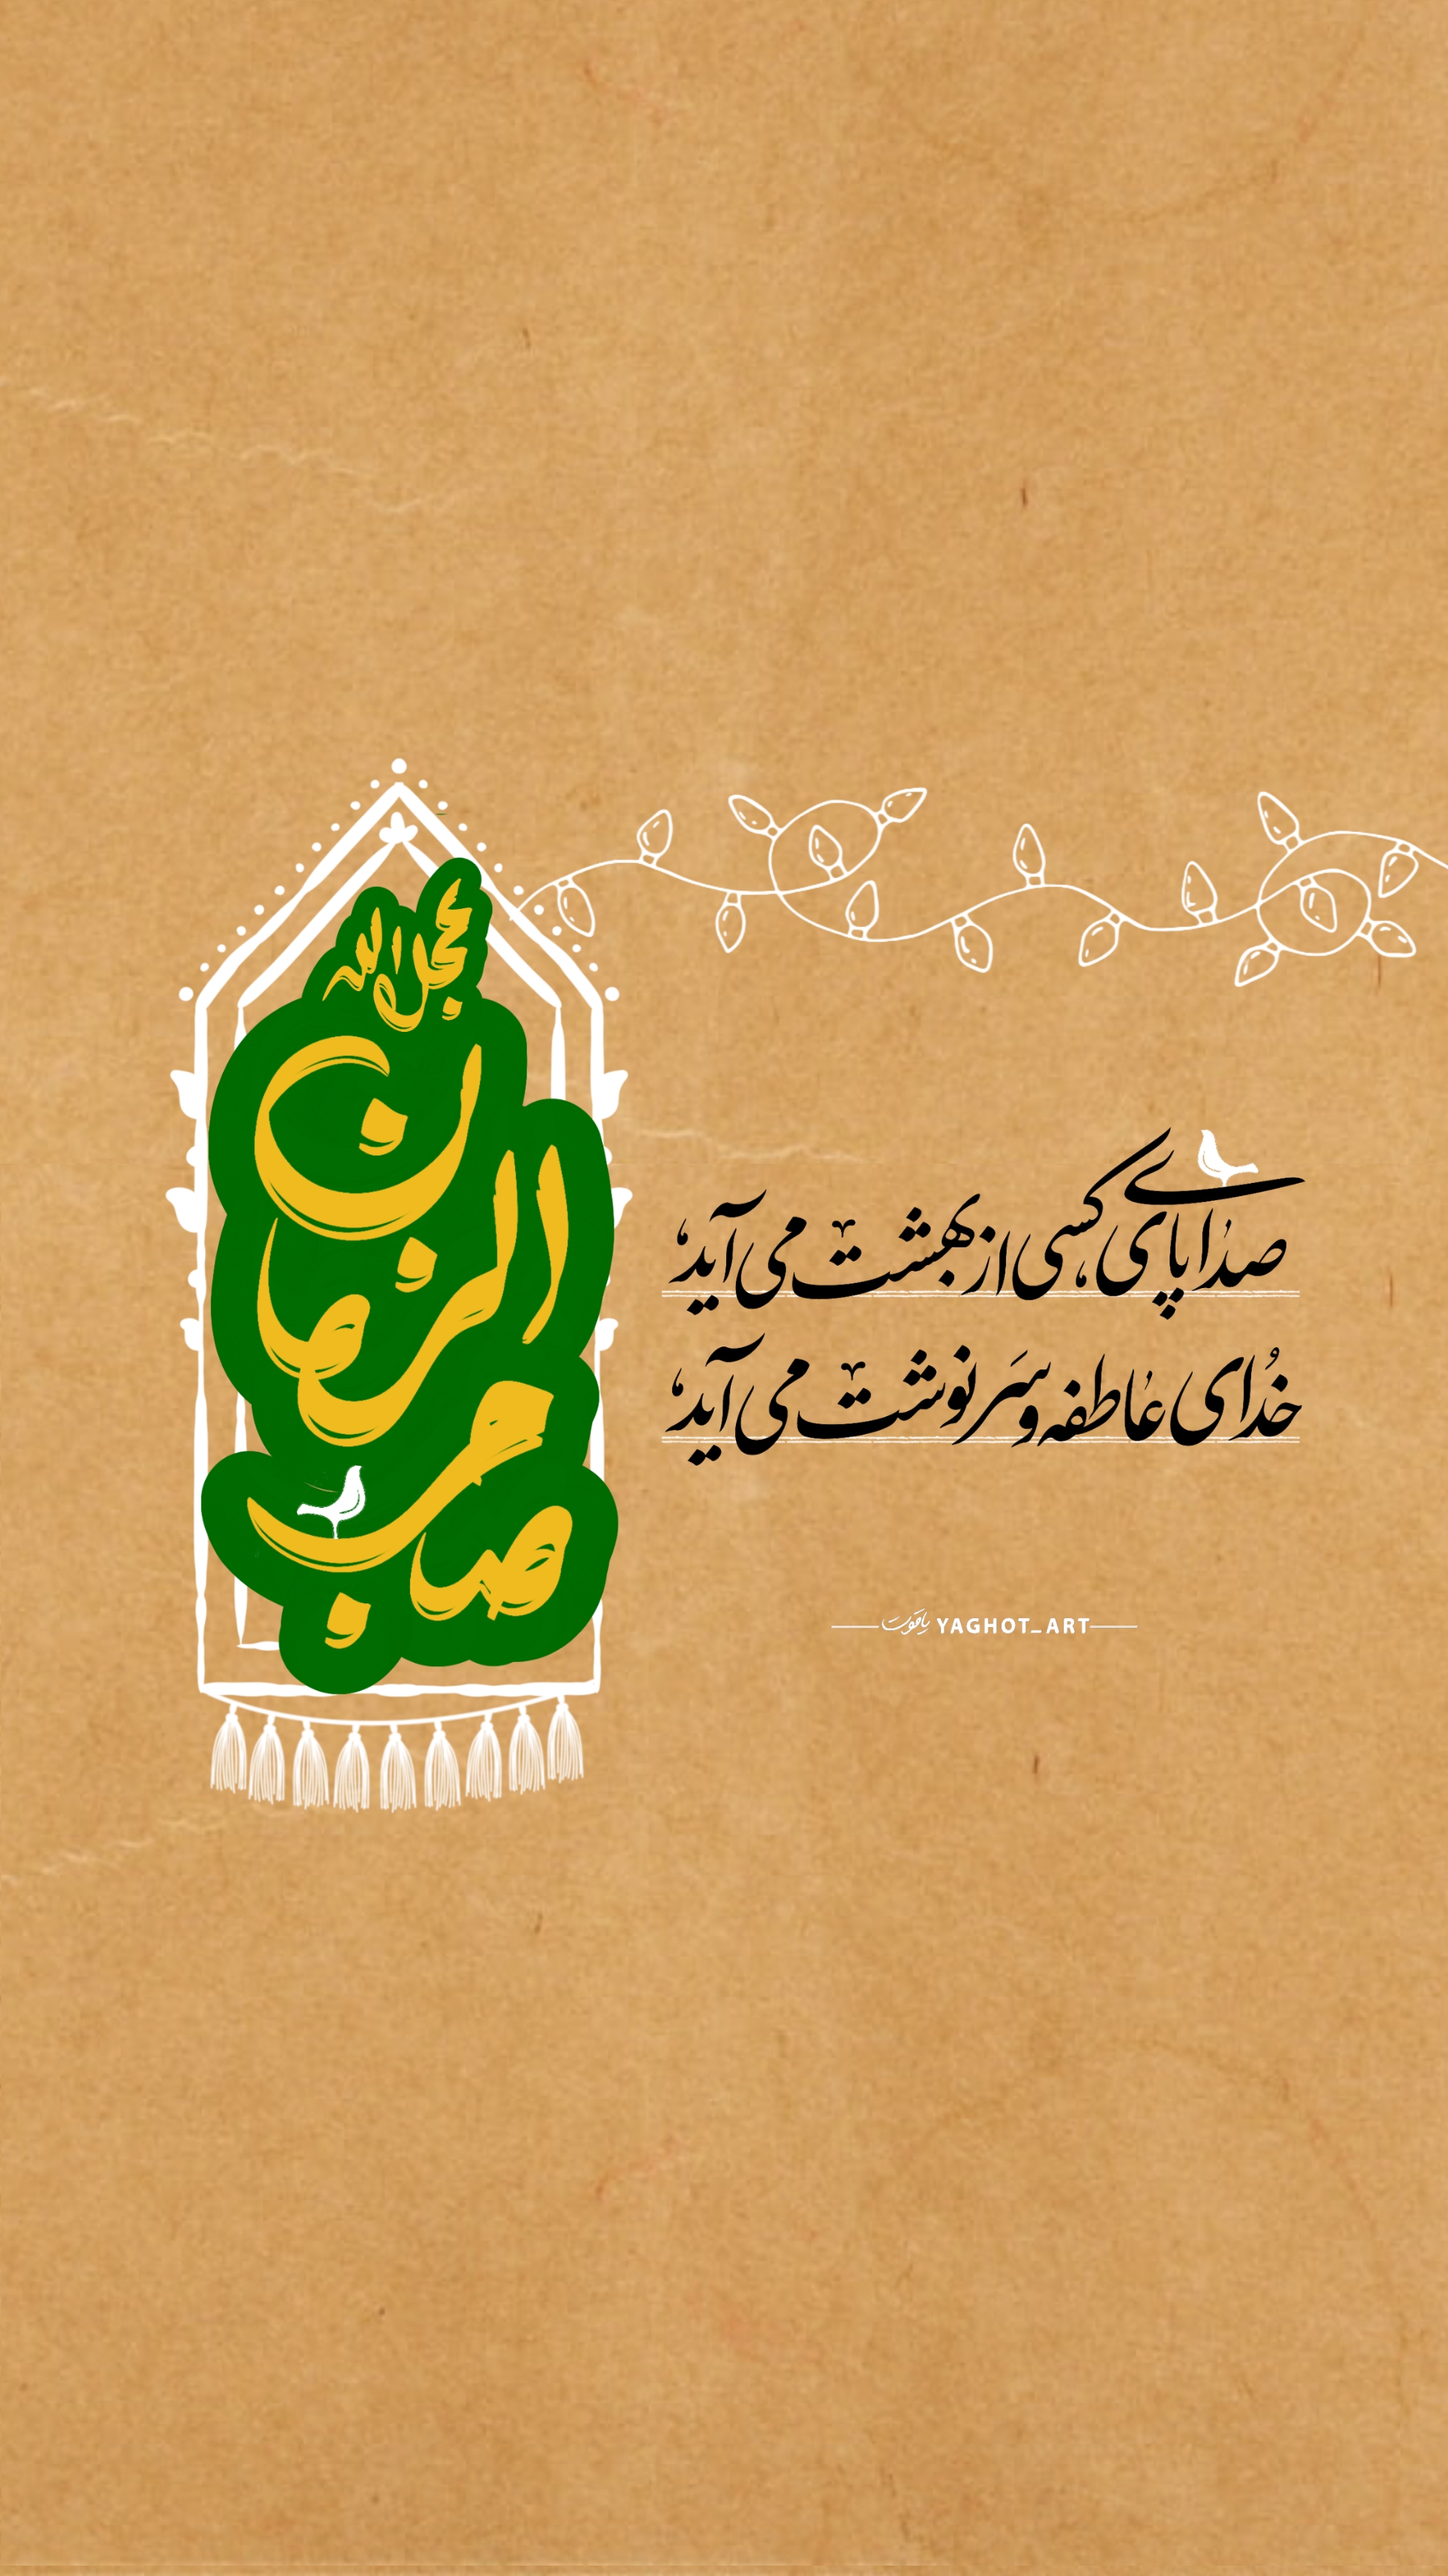 عجل الله
صاحب الزمان
صدای پای کسی از بهشت می آید
خُدای عاطفه و سَرنوشت می آید
یاقوت YAGHOT_ART